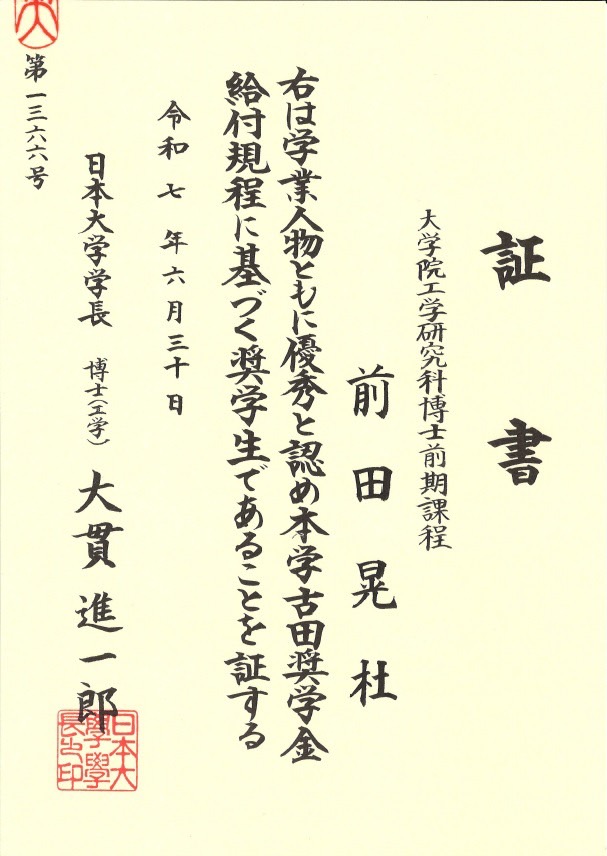 証書
大学院工学研究科博士前期課程
前田晃杜
右は学業人物ともに優秀と認め本学古田奨学金
給付規程に基づく奨学生であることを証する
令和七年六月三十日
日本大学学長 博士(工学) 大貫進一郎
日本大
學學
長之印
第一三六六号